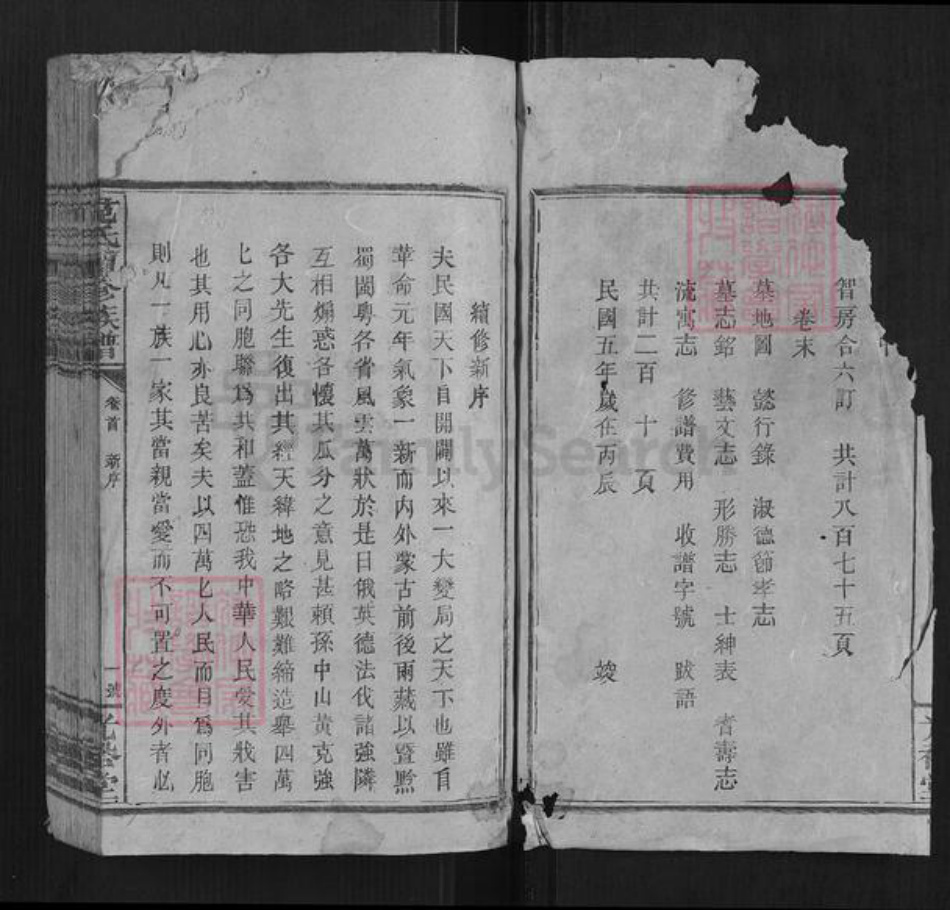 智房合六訂　共計八百七十五頁
卷末
墓地圖　懿行錄　淑德節孝志
墓志銘　藝文志　形勝志　士紳表　耆壽志
流寓志　修譜費用　收譜字號　跋語
共計二百　十　頁
民國五年歲在丙辰　竣
續修新序
夫民國天下自開闢以來一大變局之天下也雖自
革命元年氣象一新而內外蒙古前後兩藏以暨黔
蜀閩粵各省風雲萬狀於是日俄英德法伐諸強隣
互相煽惑各懷其瓜分之意見甚賴孫中山黃克強
各大先生復出其經天緯地之略艱難締造舉四萬
七之同胞聯爲共和蓋惟恐我中華人民受其戕害
也其用心亦良苦矣夫以四萬七人民而目爲同胞
則凡一族一家其當親當愛而不可置之度外者必
氏續修族譜
卷首　新序
一號
FamilySearch